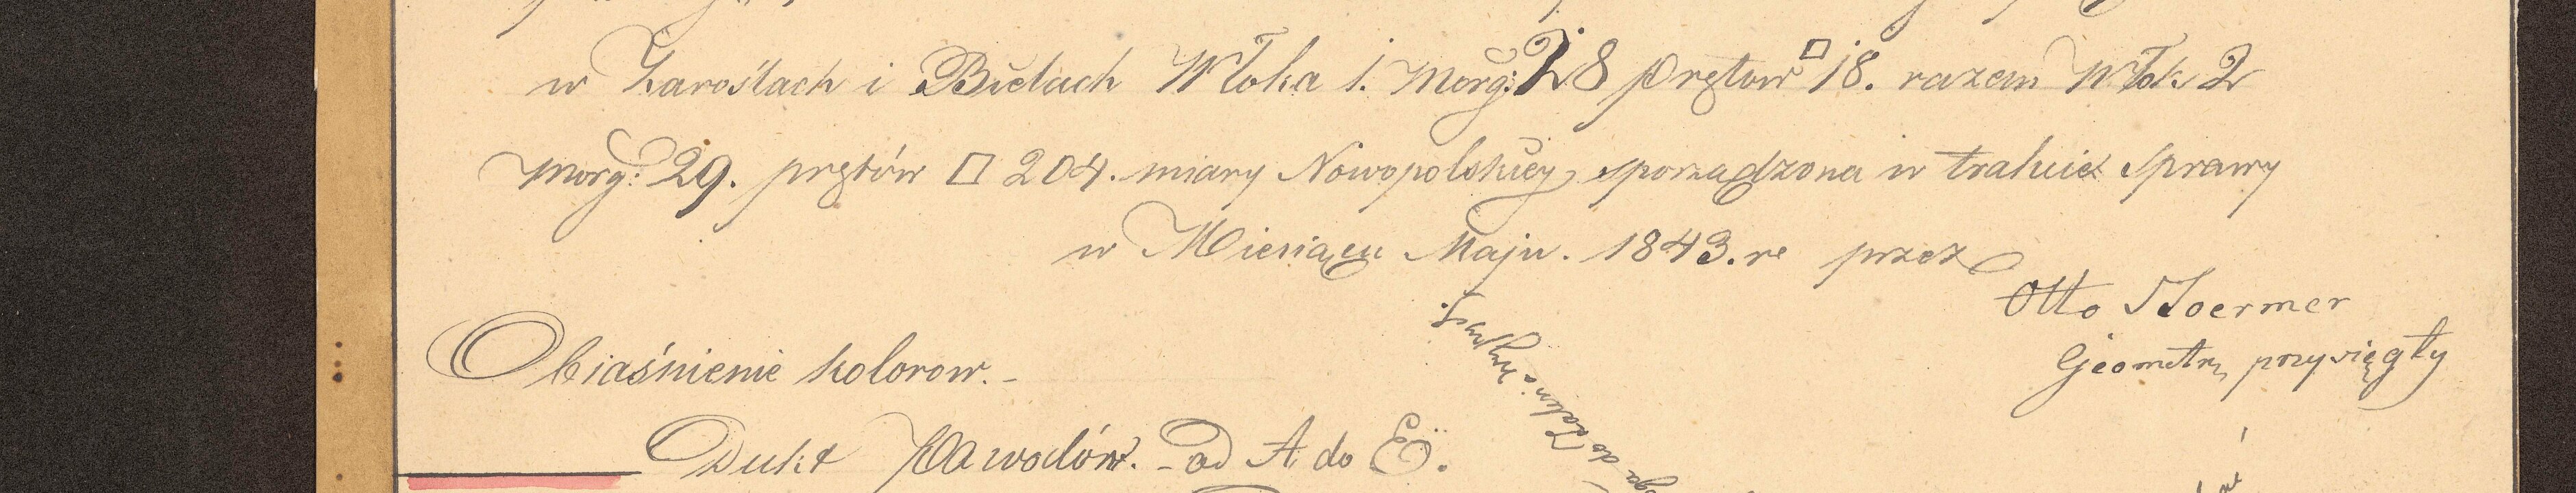 w Zaroślach i Bielach Włoka 1. Morg: 28 prętow □ 18. razem Włok 2
Morg: 29. prętów □ 204. miary Nowopolskiey sporządzona w trakcie sprawy
w Miesiącu Maju. 1843. re przez
Otto Stoermer
Geometrę przysięgły
Obiaśnienie kolorow. -
Dukt Powodów. - od A. do Ë.
do